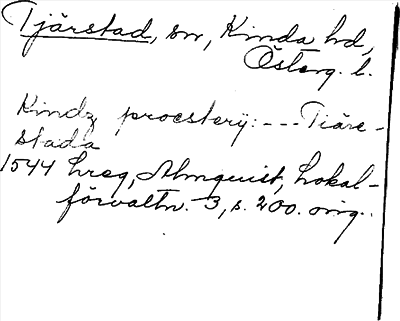 Tjärstad, sn, Kinda hd,
Österg. l.
Kindz proesterij: --- Tiäre-
stada
1544 hreg, Almquist, Lokal-
förvaltn. 3, s. 200. orig.